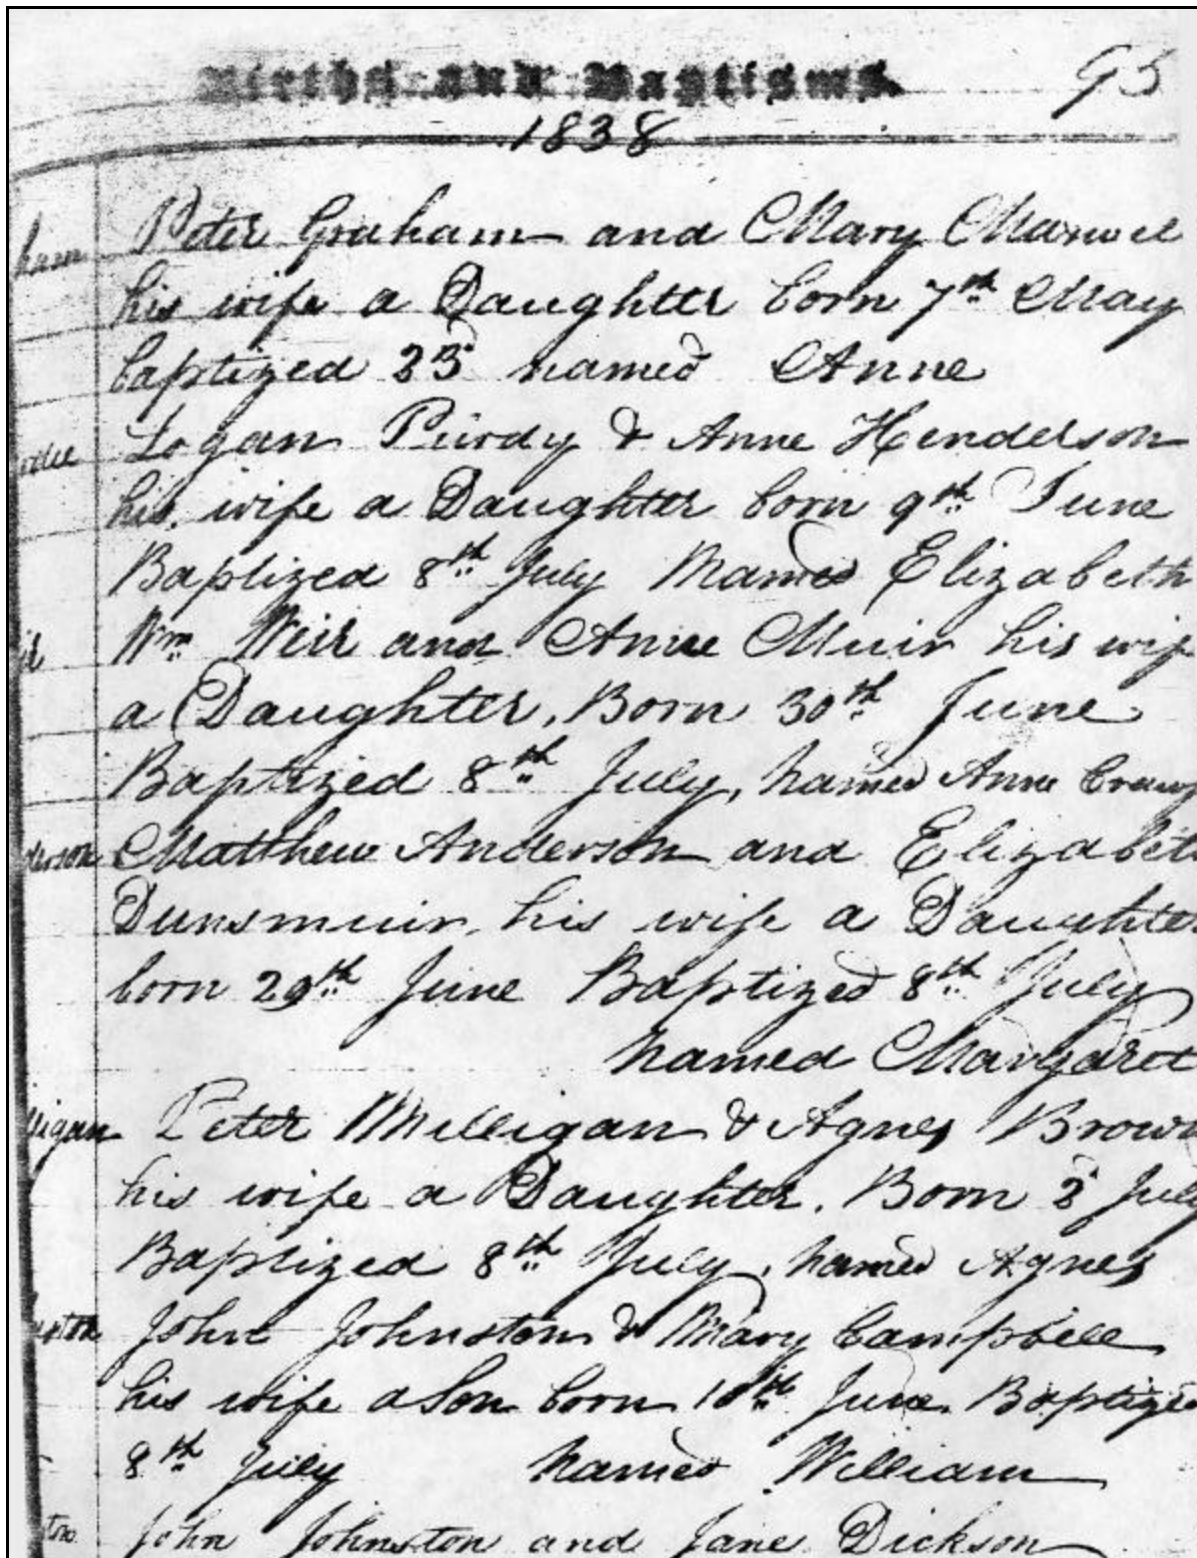 Births and Baptisms.
95
1838
ham Peter Graham and Mary Maxwel
his wife a Daughter born 7th May
baptized 23d named Anne
rdie Logan Purdy & Anne Henderson
his wife a Daughter born 9th June
Baptized 8th July Named Elizabeth
ir Wm Weir and Anne Muir his wife
a Daughter, Born 30th June
Baptized 8th July, named Anne Craw
derson Matthew Anderson and Elizabeth
Dunsmuir, his wife a Daughter
born 29th June Baptized 8th July
named Margaret
ligan Peter Milligan & Agnes Brown
his wife a Daughter, Born 2d July
Baptized 8th July, named Agnes
nston John Johnston & Mary Campbell
his wife a Son born 10th June Baptized
8th July named William
ston John Johnston and Jane Dickson